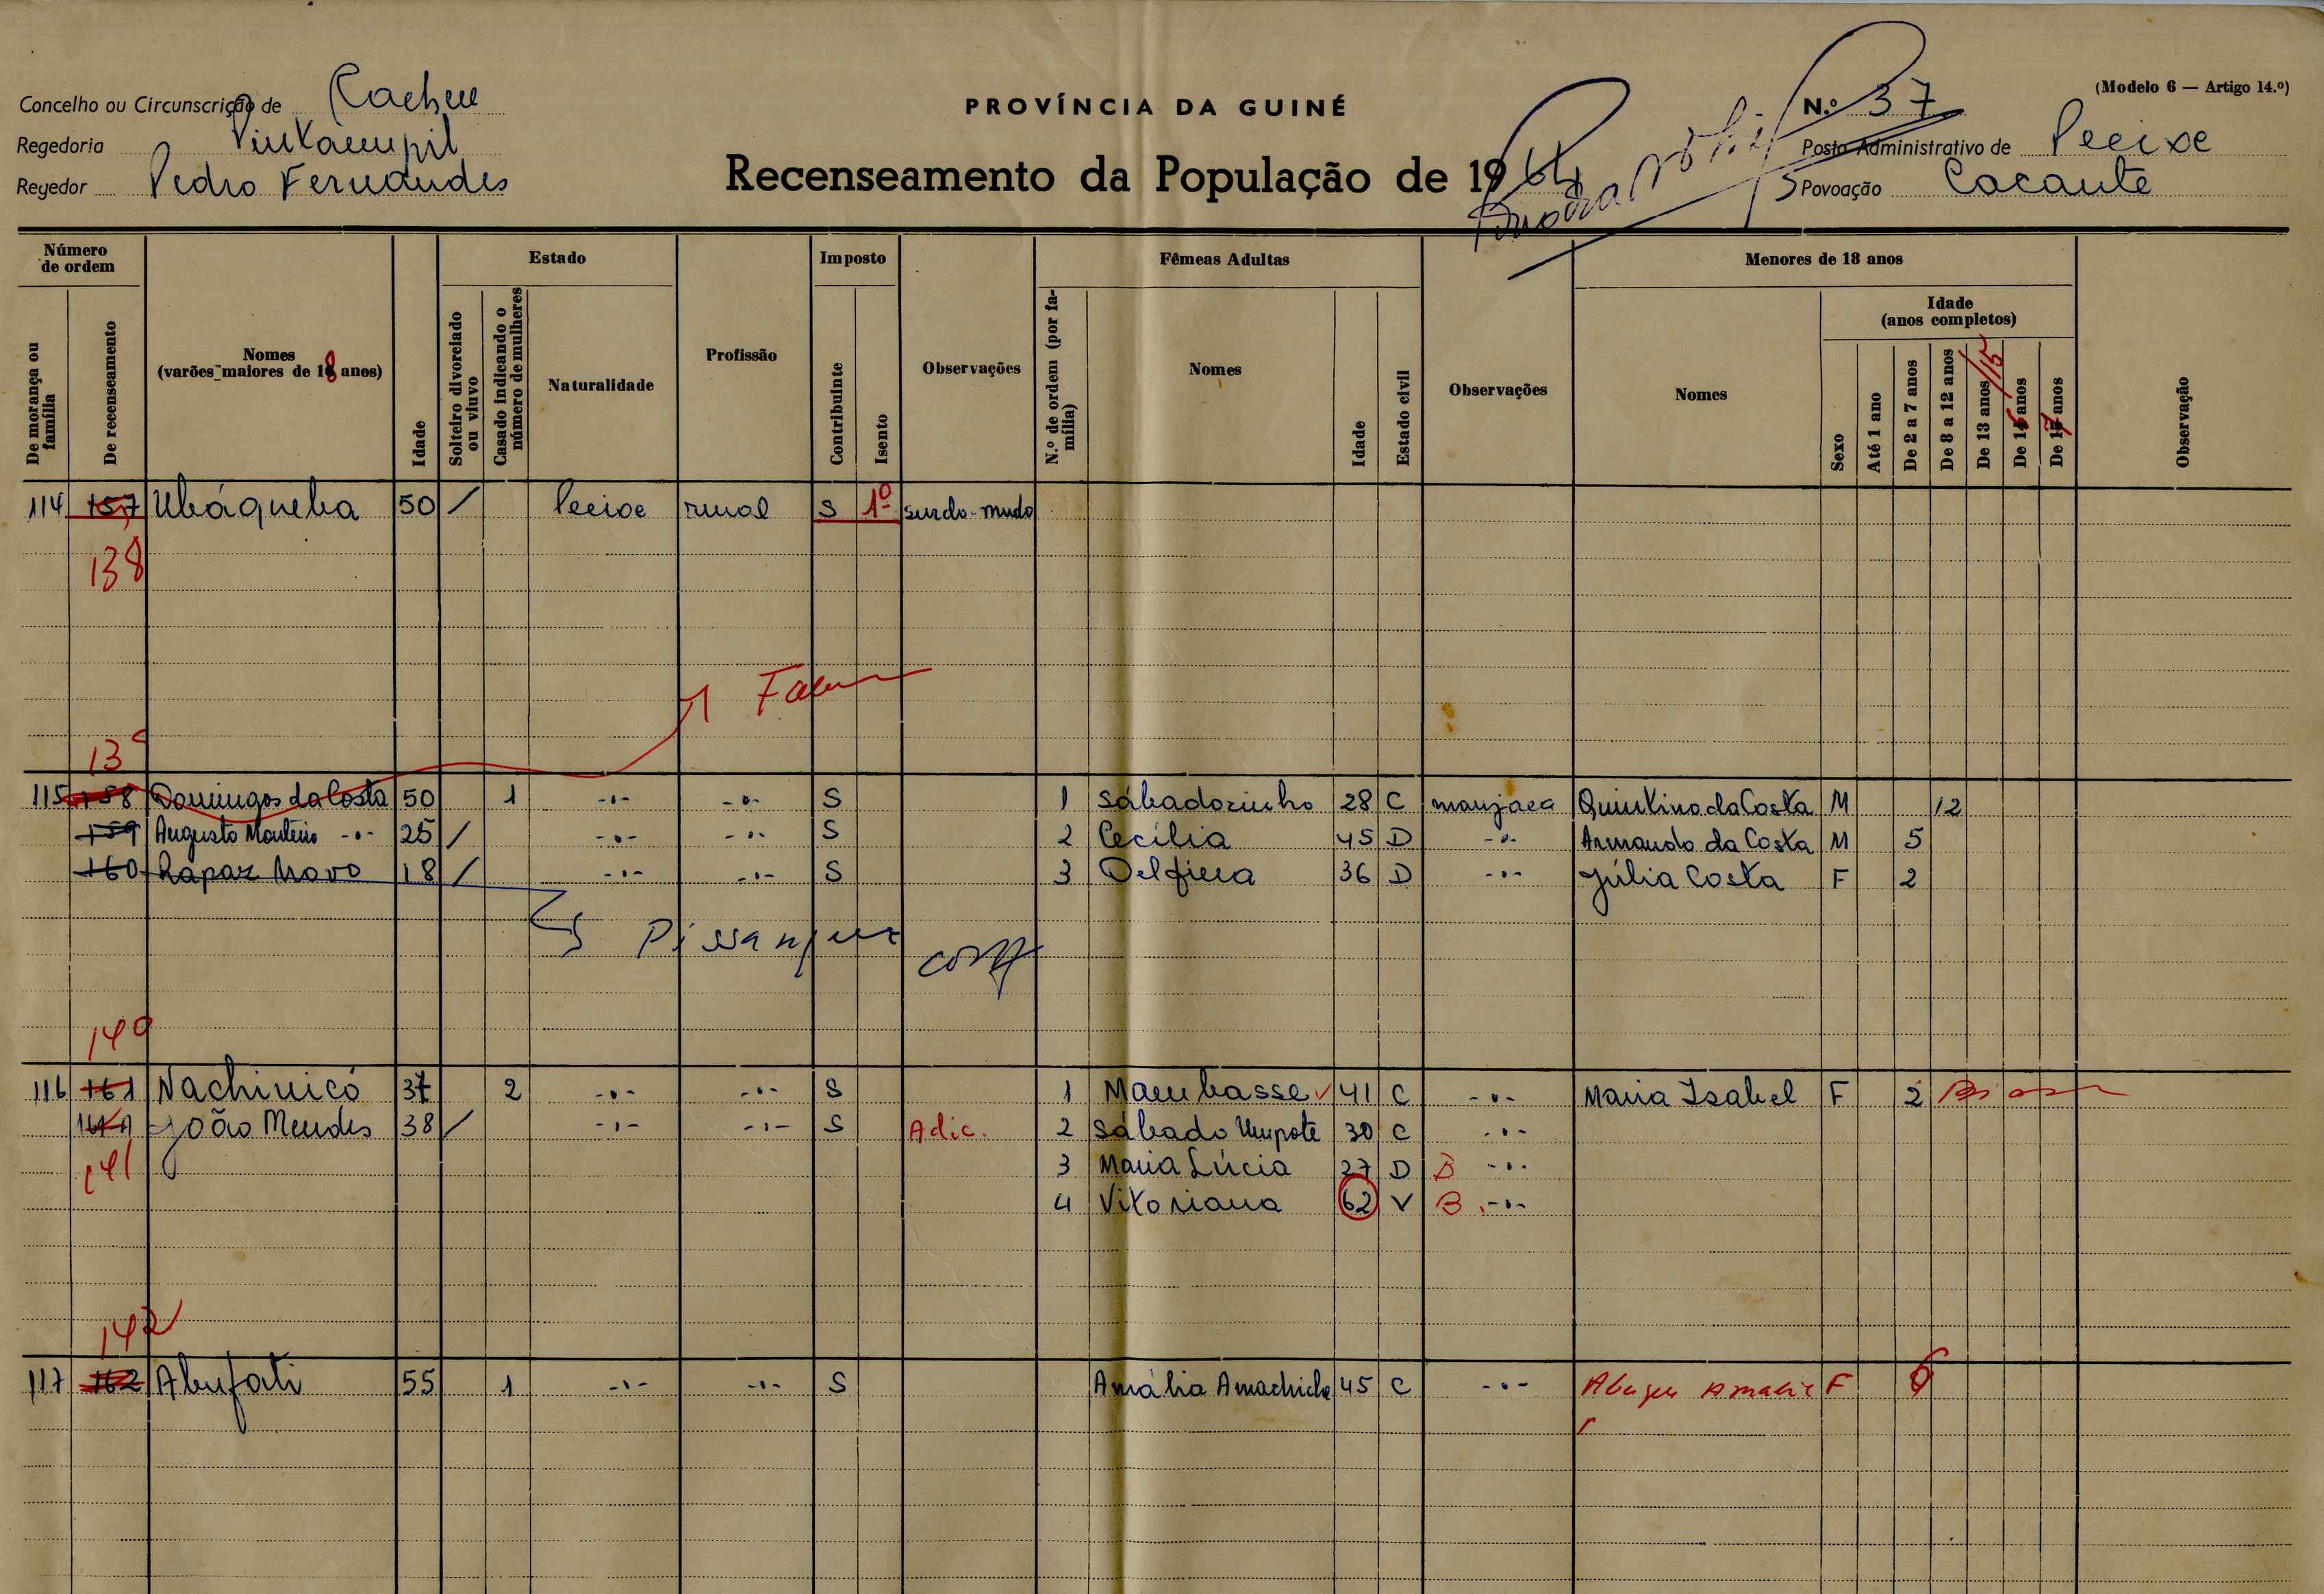 Concelho ou Circunscrição de Cacheu
Regedoria
Regedor Pedro Fernandes
PROVÍNCIA DA GUINÉ
Recenseamento da População de 1964
(Modelo 6 — Artigo 14.º)
N.º 37
Posto Administrativo de Pecixe
Povoação Cacante
Número de ordem
De morança ou família
De recenseamento
Nomes
(varões maiores de 18 anos)
Idade
Estado
Solteiro divorciado ou viuvo
Casado indicando o número de mulheres
Naturalidade
Profissão
Imposto
Contribuinte
Isento
Observações
Fêmeas Adultas
N.º de ordem (por família)
Nomes
Idade
Estado civil
Observações
Menores de 18 anos
Nomes
Sexo
Idade
(anos completos)
Até 1 ano
De 2 a 7 anos
De 8 a 12 anos
De 13 anos /15
De 16 anos
De 17 anos
Observação
114 157 Ubáqueba 50 / Pecixe rural S 1º surdo-mudo
138
Falec
13
115 158 Domingos da Costa 50 1 -"- -"- S 1 Sábadozinho 28 C manjaca Quintino da Costa M 12
159 Augusto Monteiro -"- 25 / -"- -"- S 2 Cecília 45 D -"- Armando da Costa M 5
160 Rapaz Novo 18 / -"- -"- S 3 Delfiera 36 D -"- Júlia Costa F 2
140
116 161 Nachinicó 37 2 -"- -"- S 1 Mambasse 41 C -"- Maria Isabel F 2
João Mendes 38 / -"- -"- S Adic. 2 Sábado Umpote 30 C -"-
141 3 Maria Lúcia 27 D B -"-
4 Vitoriana 62 V B -"-
142
117 162 Abufati 55 1 -"- -"- S Amália Amachicha 45 C -"- F 6